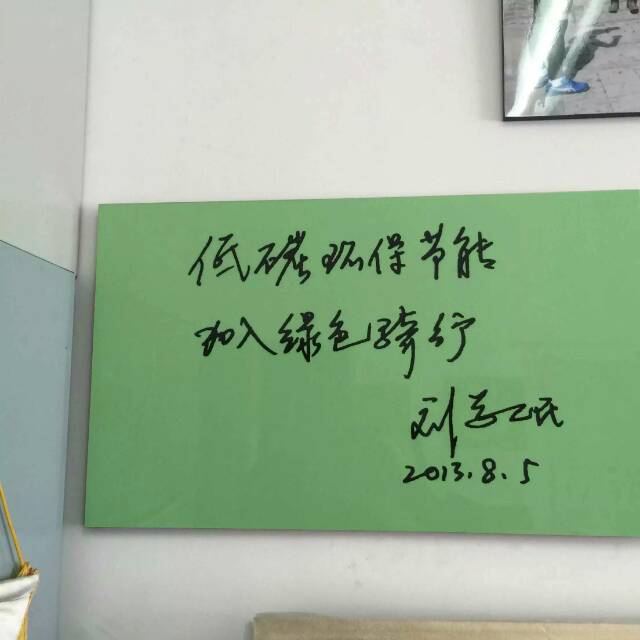 低碳环保节能
加入绿色骑行
刘
2013.8.5